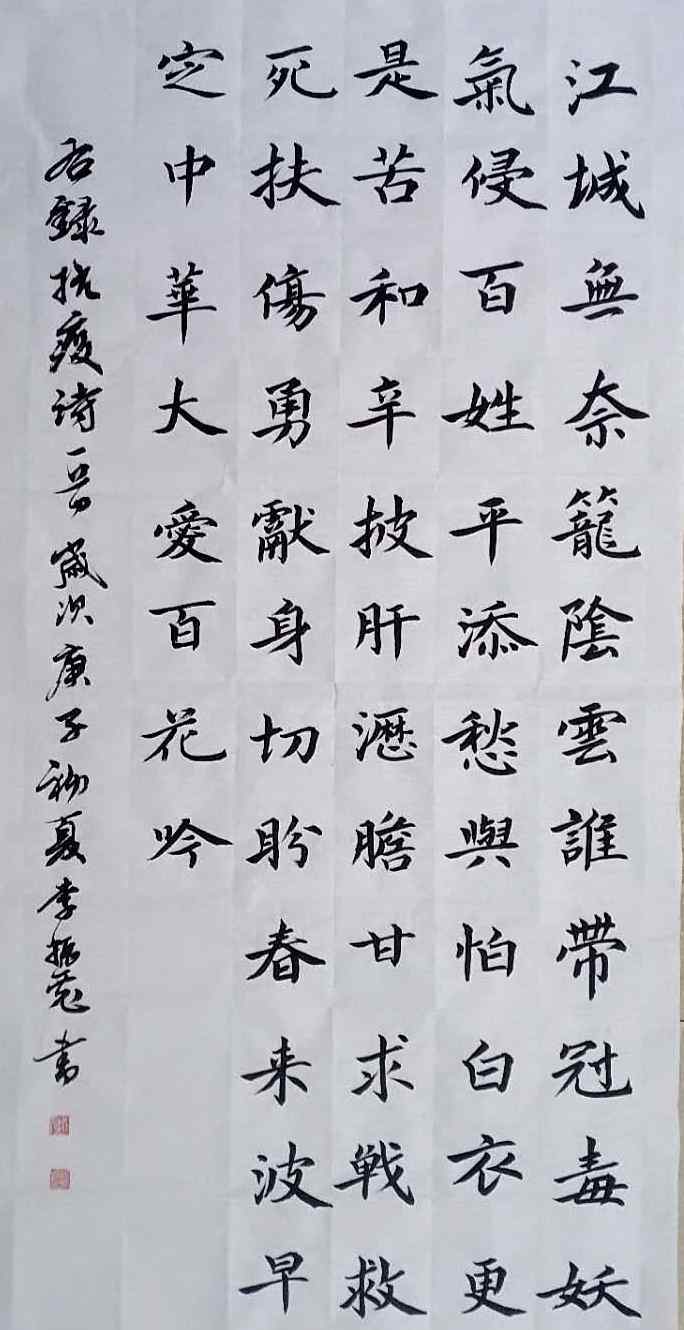 江城無奈籠陰雲誰帶冠毒妖
氣侵百姓平添愁與怕白衣更
是苦和辛披肝瀝膽甘求戰救
死扶傷勇獻身切盼春来波早
定中華大愛百花吟
右錄抗疫诗一首歲次庚子初夏李振宽书